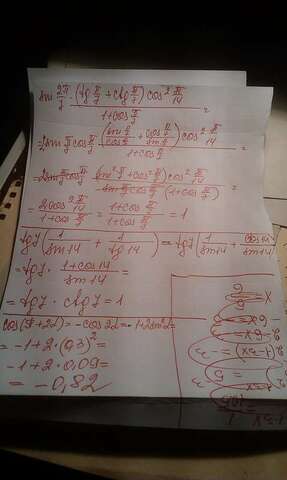 sin 2π/7 · (tg π/7 + ctg π/7) cos² π/14 / 1+cos π/7 =
= 2sin π/7 cos π/7 (sin π/7 / cos π/7 + cos π/7 / sin π/7) cos² π/14 / 1+cos π/7 =
= 2sin π/7 cos π/7 · (sin² π/7 + cos² π/7) cos² π/14 / sin π/7 cos π/7 (1+cos π/7) =
= 2cos² π/14 / 1+cos π/7 = 1+cos π/7 / 1+cos π/7 = 1
tg7 (1/sin14 + 1/tg14) = tg7 (1/sin14 + cos14/sin14) =
= tg7 · 1+cos14 / sin14 =
= tg7 · ctg7 = 1
cos(π+2α) = -cos2α = -1+2sin²α =
= -1+2·(0,3)² =
= -1+2·0,09 =
= -0,82